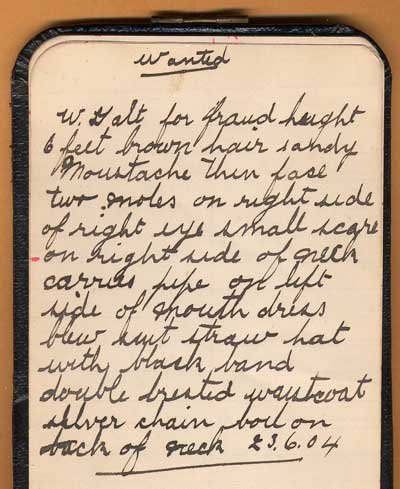 Wanted
W. Galt for fraud height
6 feet brown hair sandy
Moustache thin fase
two moles on right side
of right eye small scare
on right side of neck
carries pipe on left
side of mouth dress
blew suit straw hat
with black band
double brested waistcoat
silver chain boil on
back of neck 23.6.04